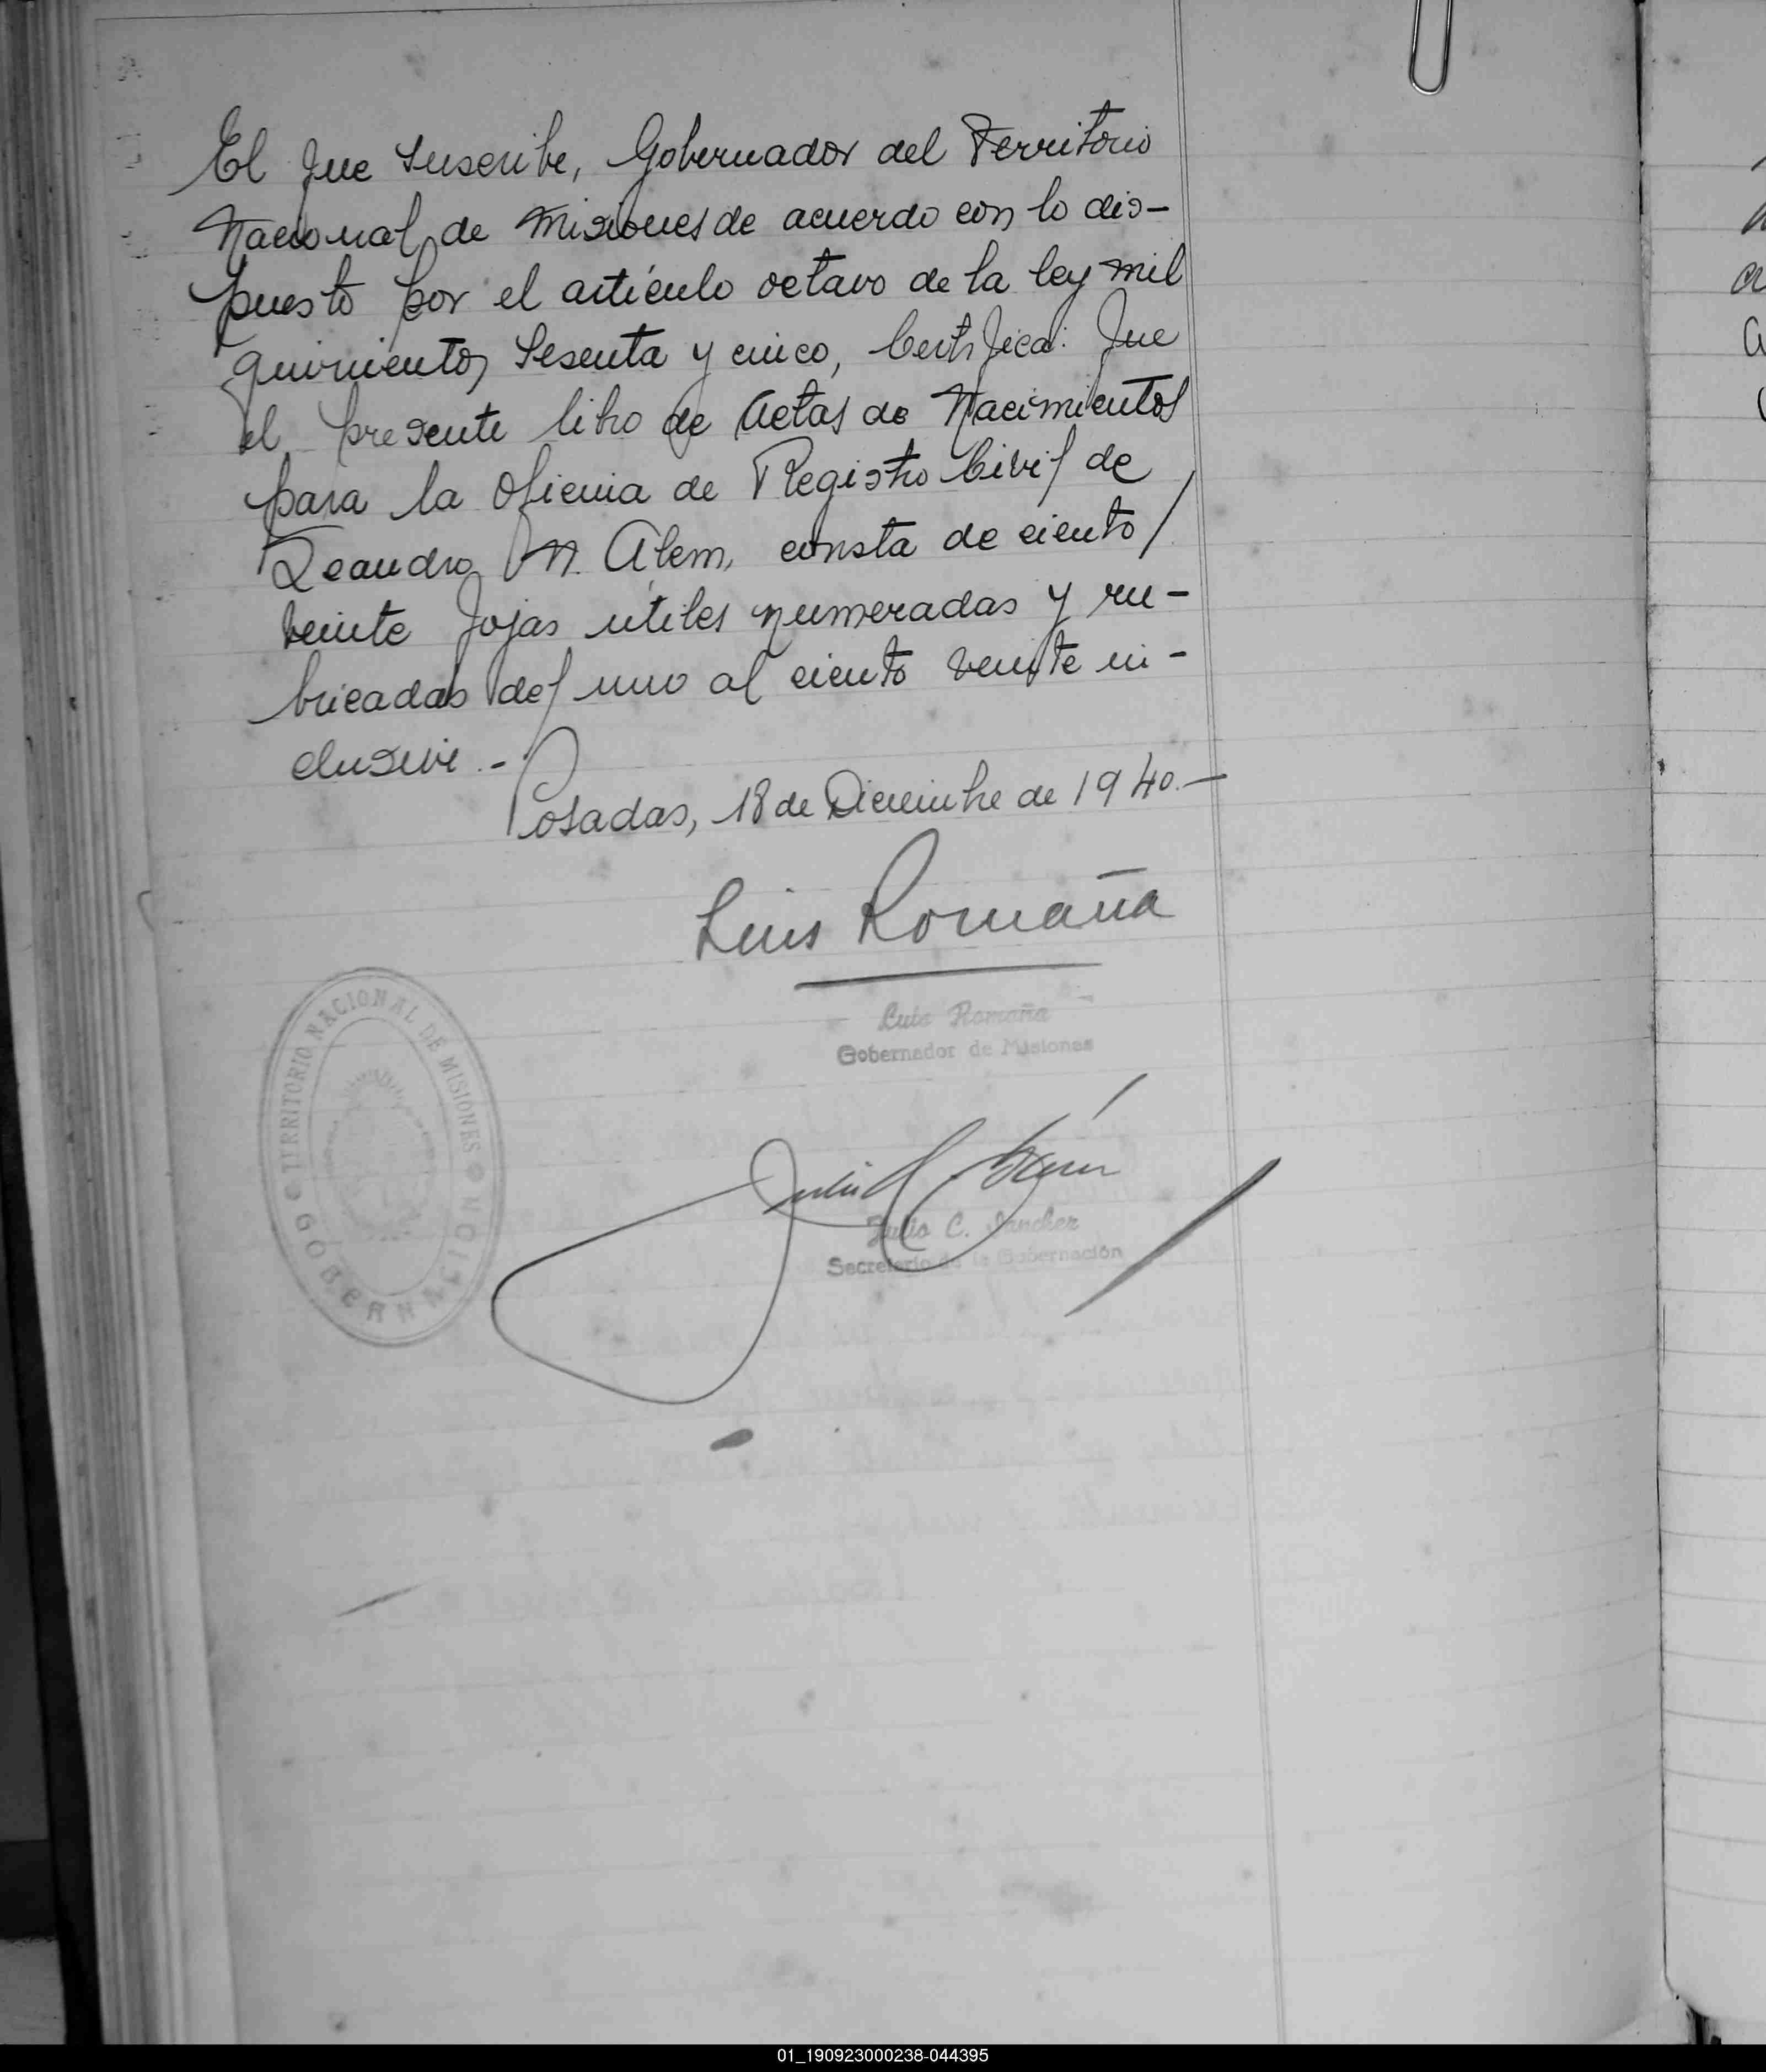 El que suscribe, Gobernador del Territorio
Nacional de Misiones de acuerdo con lo dis-
puesto por el artículo octavo de la ley mil
quinientos sesenta y cinco, Certifica: Que
el presente libro de Actas de Nacimientos
para la Oficina de Registro Civil de
Leandro N. Alem, consta de ciento/
veinte fojas útiles numeradas y ru-
bricadas del uno al ciento veinte in-
clusive.-
Posadas, 18 de Diciembre de 1940.-
Luis Romaña
Luis Romaña
Gobernador de Misiones
TERRITORIO NACIONAL DE MISIONES
GOBERNACION
Julio C. Sanchez
Secretario de la Gobernación
01_190923000238-044395